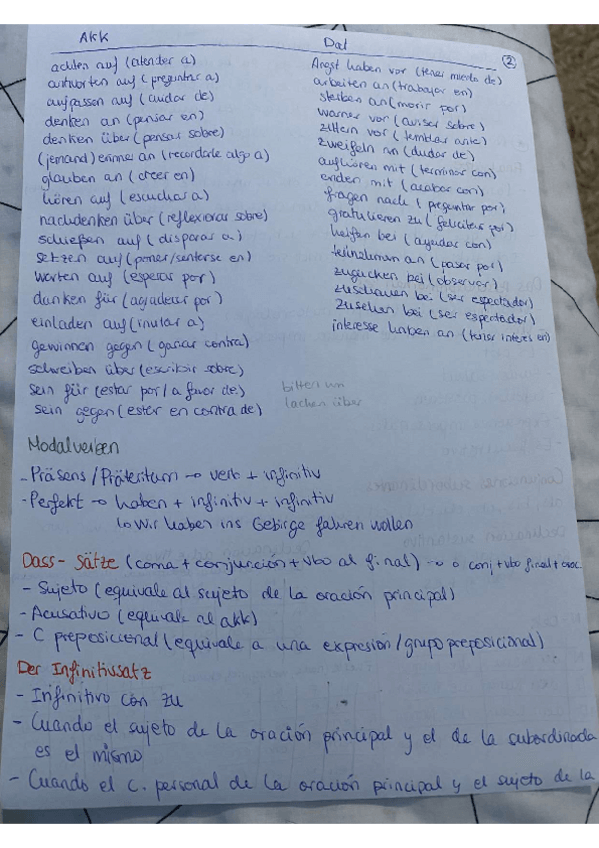 Akk
achten auf (atender a)
antworten auf (preguntar a)
aufpassen auf (cuidar de)
denken an (pensar en)
denken über (pensar sobre)
(jemand) erinner an (recordarle algo a)
glauben an (creer en)
hören auf (escuchar a)
nachdenken über (reflexionar sobre)
schießen auf (disparar a)
setzen auf (poner/sentarse en)
warten auf (esperar por)
danken für (agradecer por)
einladen auf (invitar a)
gewinnen gegen (ganar contra)
schreiben über (escribir sobre)
sein für (estar por/a favor de)
sein gegen (estar en contra de)
Dat
2
Angst haben vor (tener miedo de)
arbeiten an (trabajar en)
sterben an (morir por)
warnen vor (avisar sobre)
zittern vor (temblar ante)
zweifeln an (dudar de)
aufhören mit (terminar con)
enden mit (acabar con)
fragen nach (preguntar por)
gratulieren zu (felicitar por)
helfen bei (ayudar con)
teilnehmen an (pasar por)
zugucken bei (observar)
zuschauen bei (ser espectador)
zusehen bei (ser espectador)
interesse haben an (tener interés en)
bitten um
lachen über
Modalverben
- Präsens / Präteritum → verb + infinitiv
- Perfekt → haben + infinitiv + infinitiv
↳ Wir haben ins Gebirge fahren wollen
Dass - Sätze (coma + conjunción + vbo al final) → o conj + vbo final + orac.
- Sujeto (equivale al sujeto de la oración principal)
- Acusativo (equivale al akk)
- C preposicional (equivale a una expresión/grupo preposicional)
Der Infinitivsatz
- Infinitivo con zu
- Cuando el sujeto de la oración principal y el de la subordinada
es el mismo
- Cuando el c. personal de la oración principal y el sujeto de la